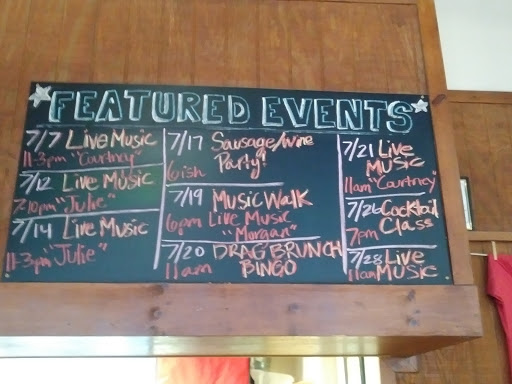 FEATURED EVENTS
7/7 Live Music
11-3pm "Courtney"
7/12 Live Music
7-10pm "Julie"
7/14 Live Music
11-3pm "Julie"
7/17 Sausage/Wine
Party!
6ish
7/19 Music Walk
6pm Live Music
"Morgan"
7/20 DRAG BRUNCH
11am BINGO
7/21 Live
Music
11am "Courtney"
7/26 Cocktail
Class
7pm
7/28 Live
11am Music